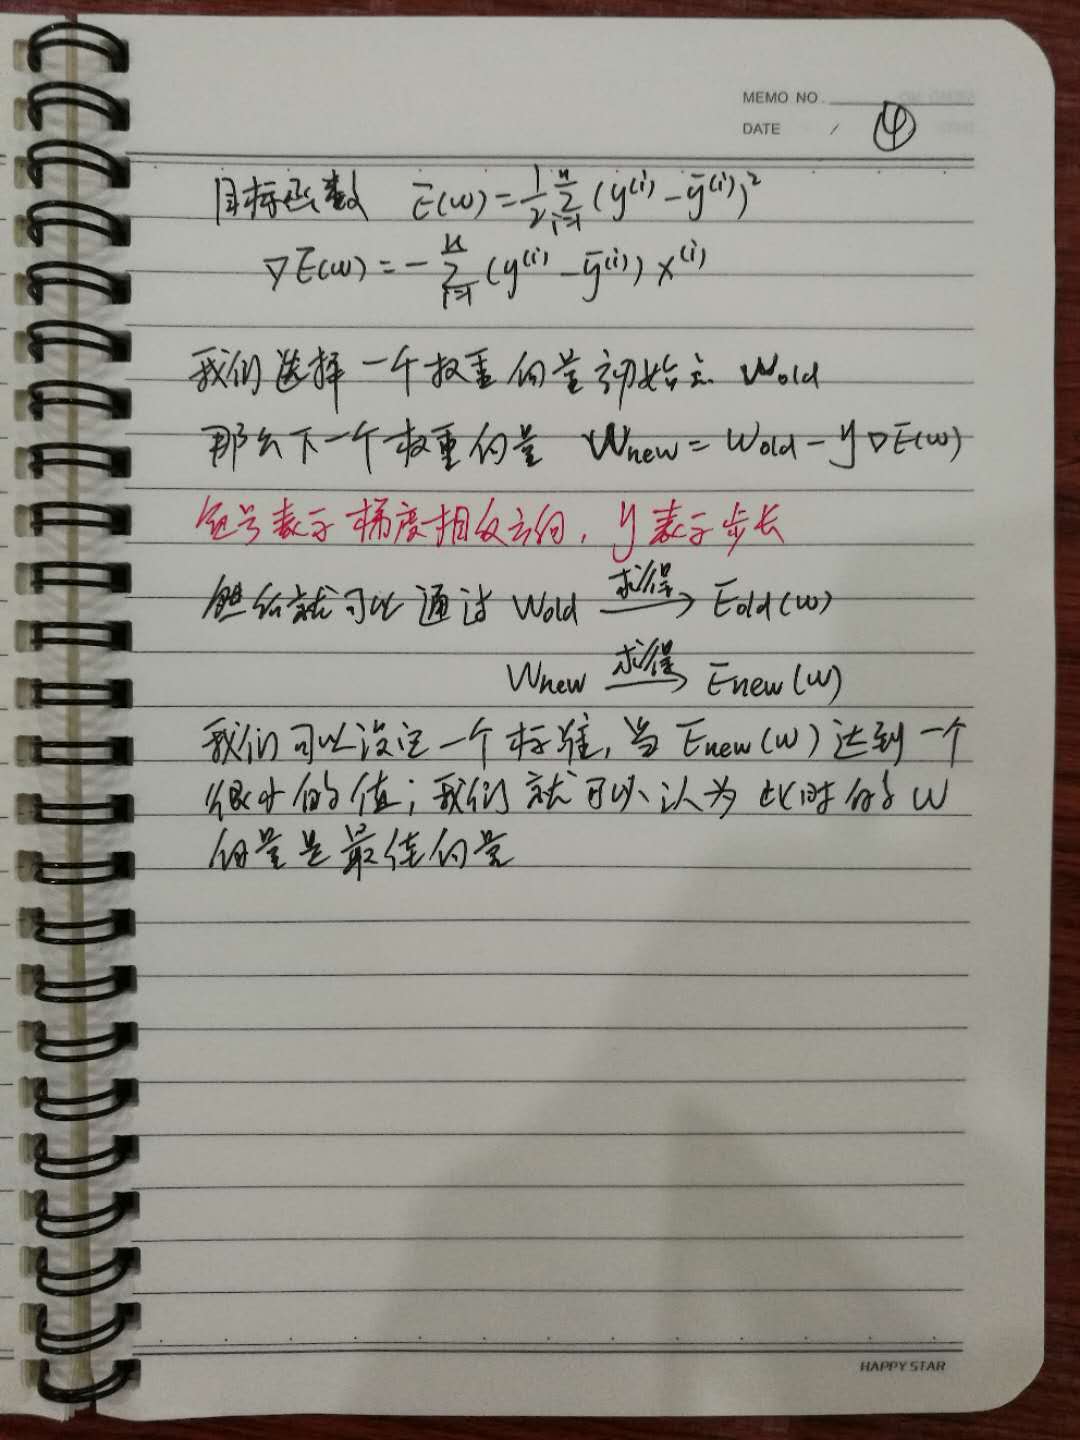 MEMO NO
DATE / ④
目标函数 E(w) = 1/2 Σ_{i=1}^{n} (y^(i) - ȳ^(i))²
▽E(w) = - Σ_{i=1}^{n} (y^(i) - ȳ^(i)) x^(i)
我们选择一个权重向量初始为 Wold
那么下一个权重向量 Wnew = Wold - y▽E(w)
负号表示梯度相反方向, y表示步长
然后就可以通过 Wold 求得→ Eold(w)
Wnew 求得→ Enew(w)
我们可以设定一个标准, 当 Enew(w) 达到一个
很小的值; 我们就可以认为此时的 W
向量是最佳向量
HAPPY STAR